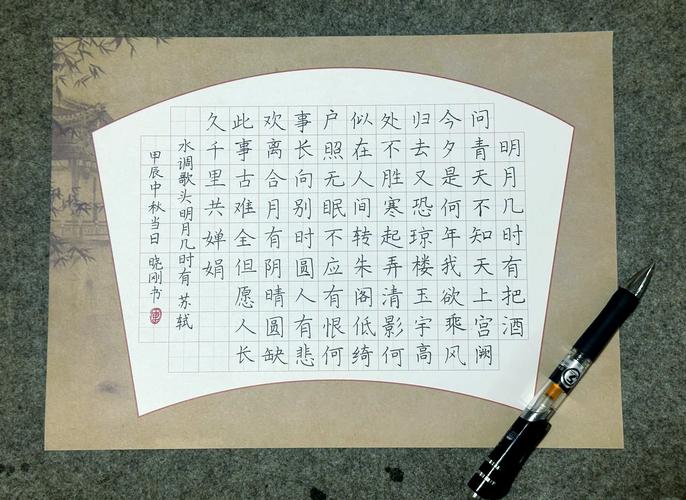 明月几时有把酒
问青天不知天上宫阙
今夕是何年我欲乘风
归去又恐琼楼玉宇高
处不胜寒起弄清影何
似在人间转朱阁低绮
户照无眠不应有恨何
事长向别时圆人有悲
欢离合月有阴晴圆缺
此事古难全但愿人长
久千里共婵娟
水调歌头明月几时有 苏轼
甲辰中秋当日 晓刚书